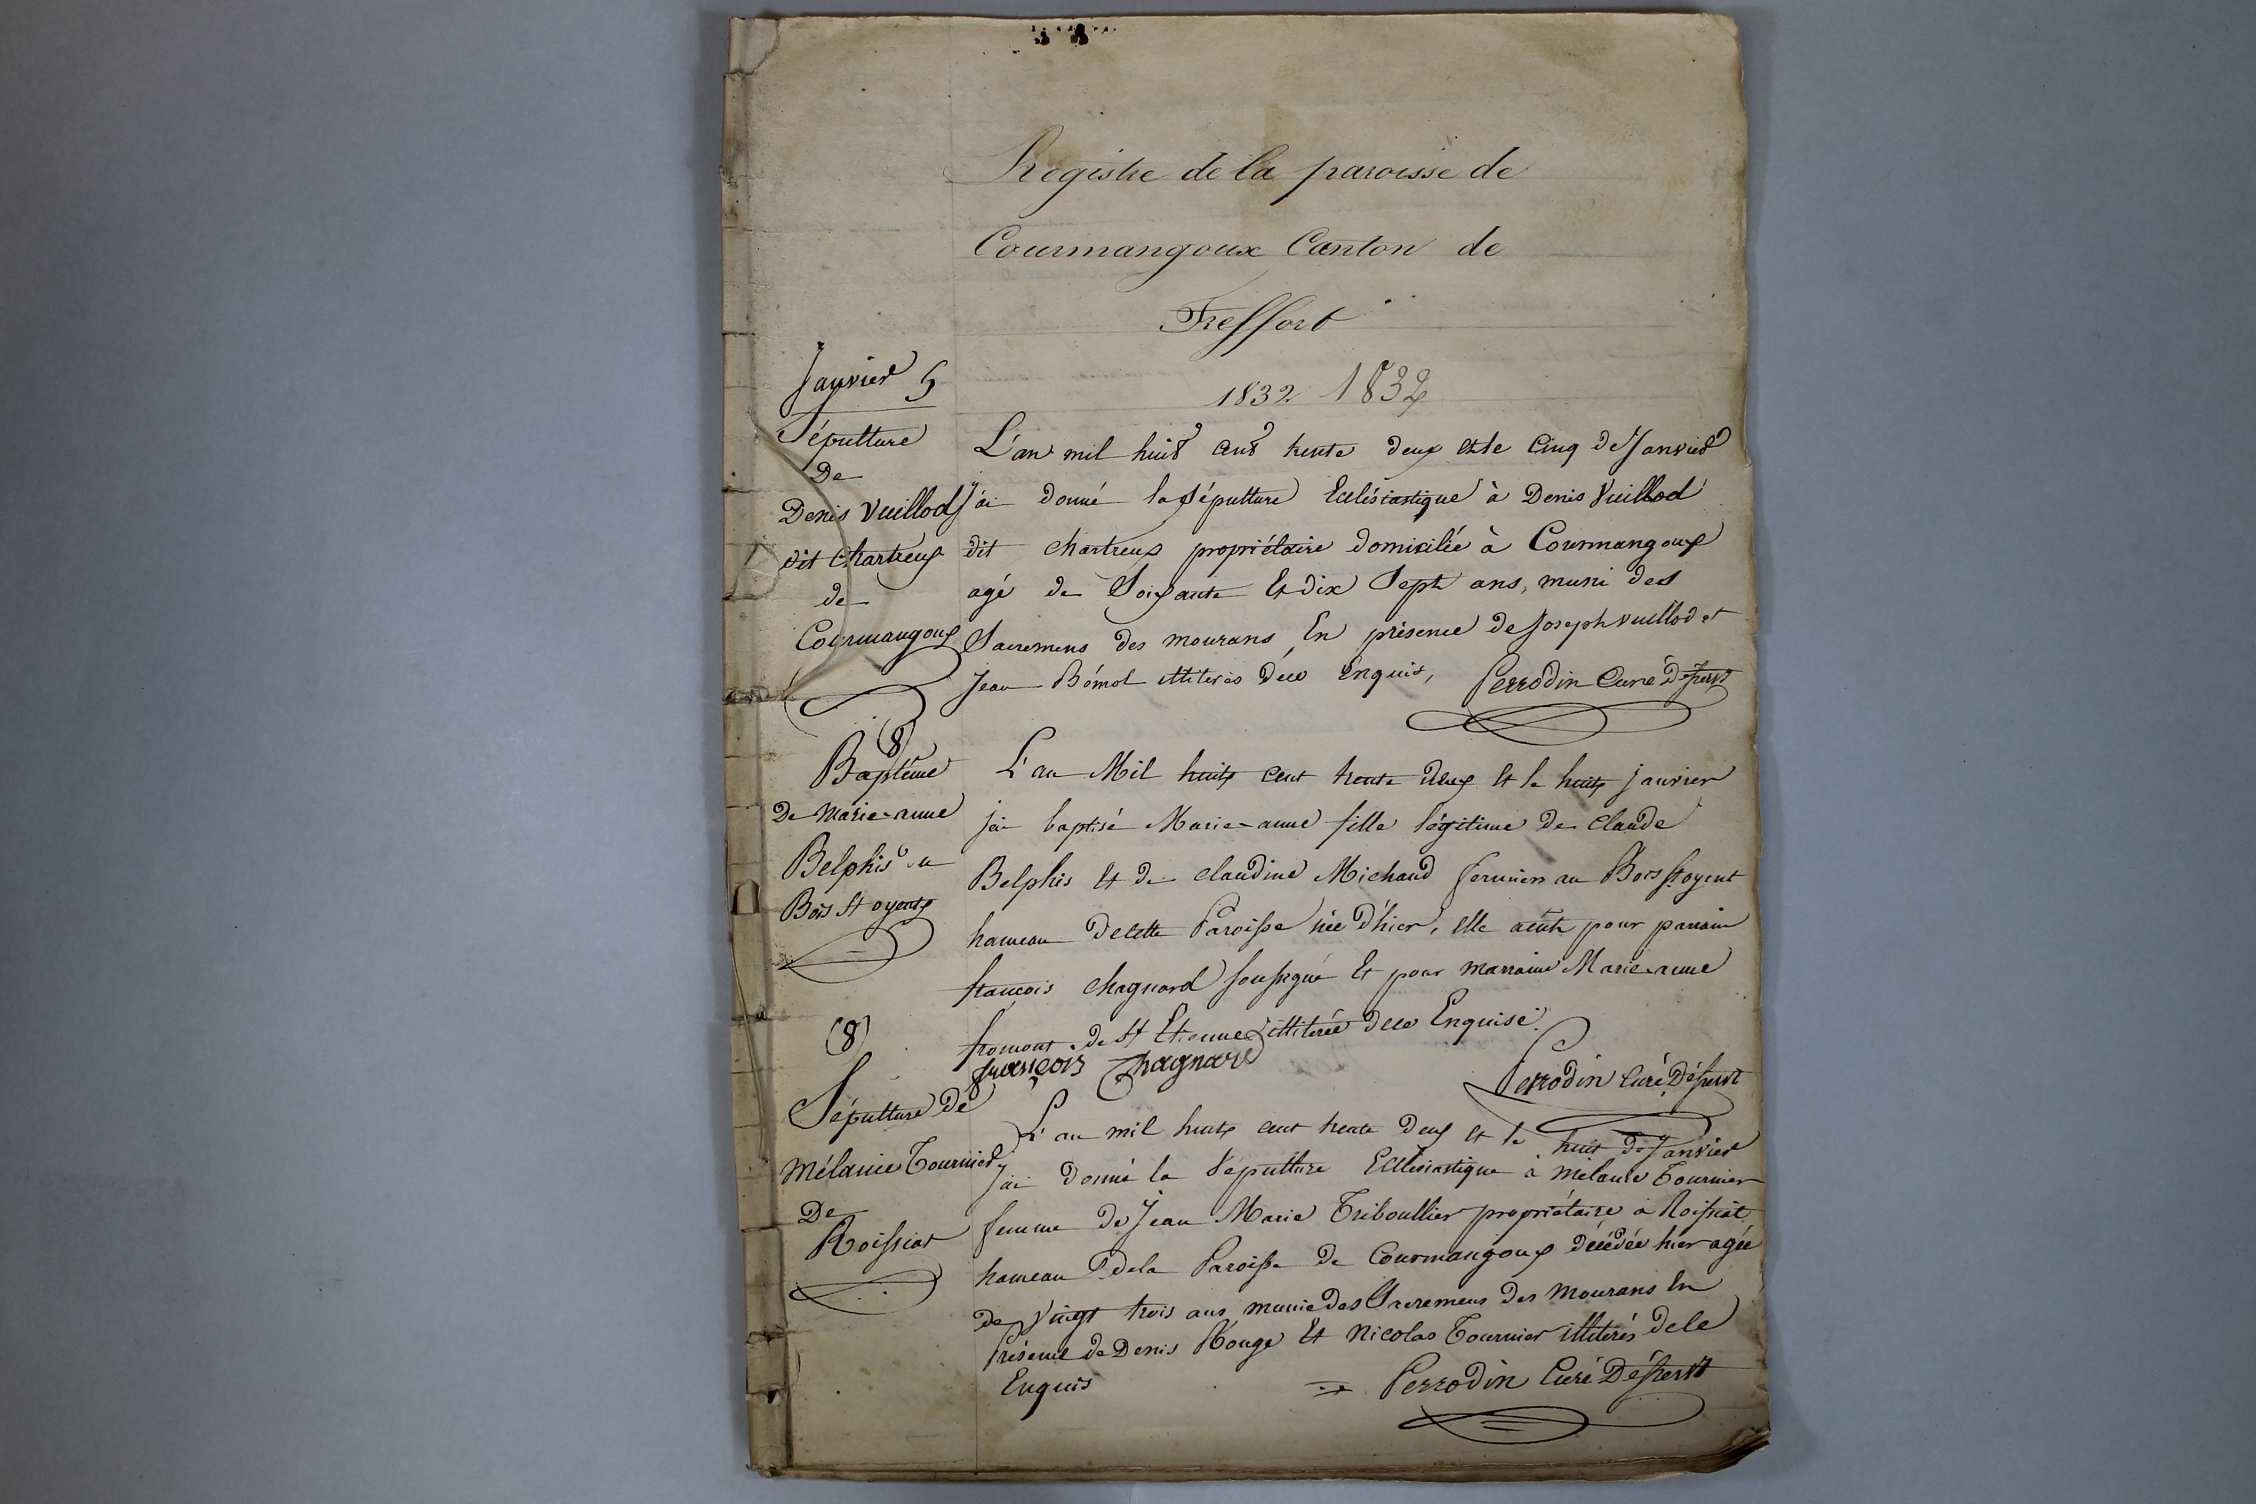 Registre de la paroisse de
Courmangoux Canton de
Treffort
1832 1832
Janvier 5
Sépulture
De
Denis Vuillod
dit Chartreux
de
Courmangoux
L'an mil huit cent trente deux et le Cinq de Janvier
J'ai donné la Sépulture Ecclésiastique à Denis Vuillod
dit chartreux propriétaire domicilié à Courmangoux
agé de Soixante Et dix Sept ans, muni des
Sacremens des mourans, En présence de Joseph vuillod et
Jean illiterés dece Enquis, Perrodin Curé
(8)
Baptême
De Marie-anne
Belphis
Bois St oyent
L'an Mil huit cent trente deux Et le huit janvier
j'ai baptisé Marie-anne fille légitime De Claude
Belphis Et de claudine Michaud fermiers au Bois St oyent
hameau De cette Paroisse née D'hier, elle pour parrain
francois chagnard soussigné Et pour marraine Marie-anne
fromont de St Etienne illiterée dece Enquise.
françois Chagnard
Perrodin Curé
(8)
Sépulture de
Mélanie Tournier
De
Roissiat
L'an mil huit cent trente Deux et le huit de Janvier
J'ai donné la Sépulture Ecclésiastique à Mélanie Tournier
femme de Jean Marie Triboullier propriétaire à Roissiat
hameau de la Paroisse de Courmangoux décédée hier agée
de vingt trois ans, munie des Sacremens des Mourans En
Présence de Denis Rouge Et Nicolas Tournier illiterés dece
Enquis Perrodin Curé